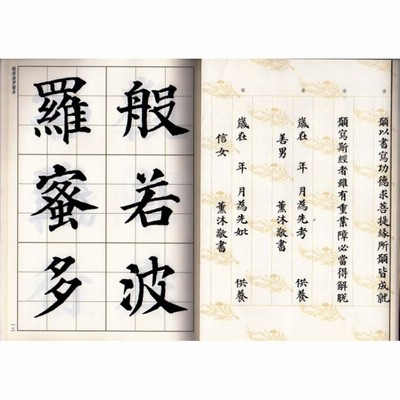 願以書寫功德求菩提緣所願皆成就
願寫斯經者雖有重業障必當得解脫
歲在 年 月為先考 供養
善男 薰沐敬書
歲在 年 月為先妣 供養
信女 薰沐敬書
般若波
羅蜜多